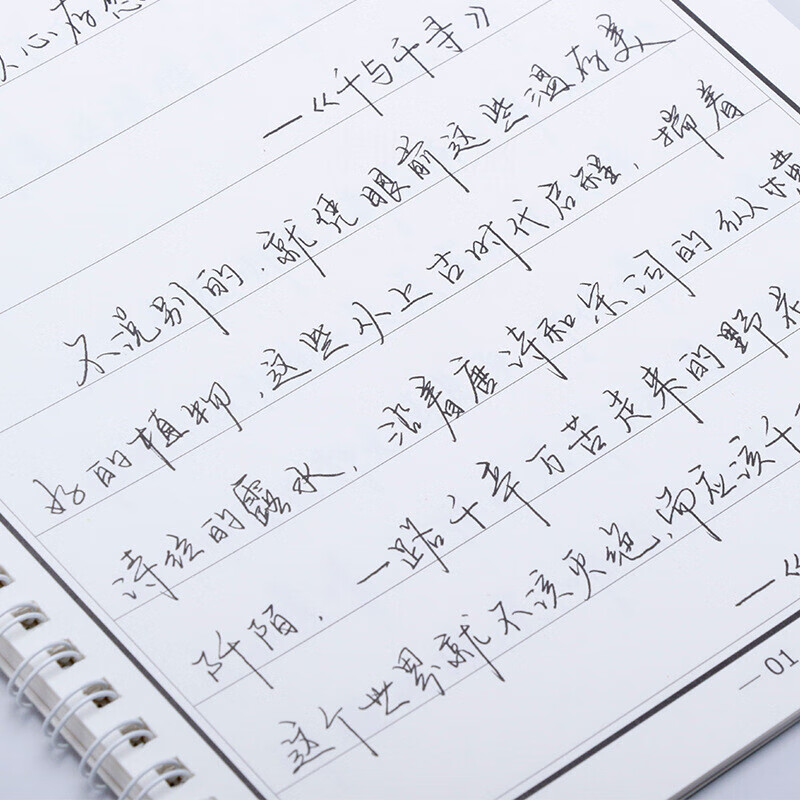 心存感
—《千与千寻》
不说别的，就凭眼前这些温存美
好的植物，这些从上古时代启程，揣着
诗经的露水，沿着唐诗和宋词的纵横
阡陌，一路千辛万苦走来的野菜
这个世界就不该灭绝，而应该千
—《
— 01